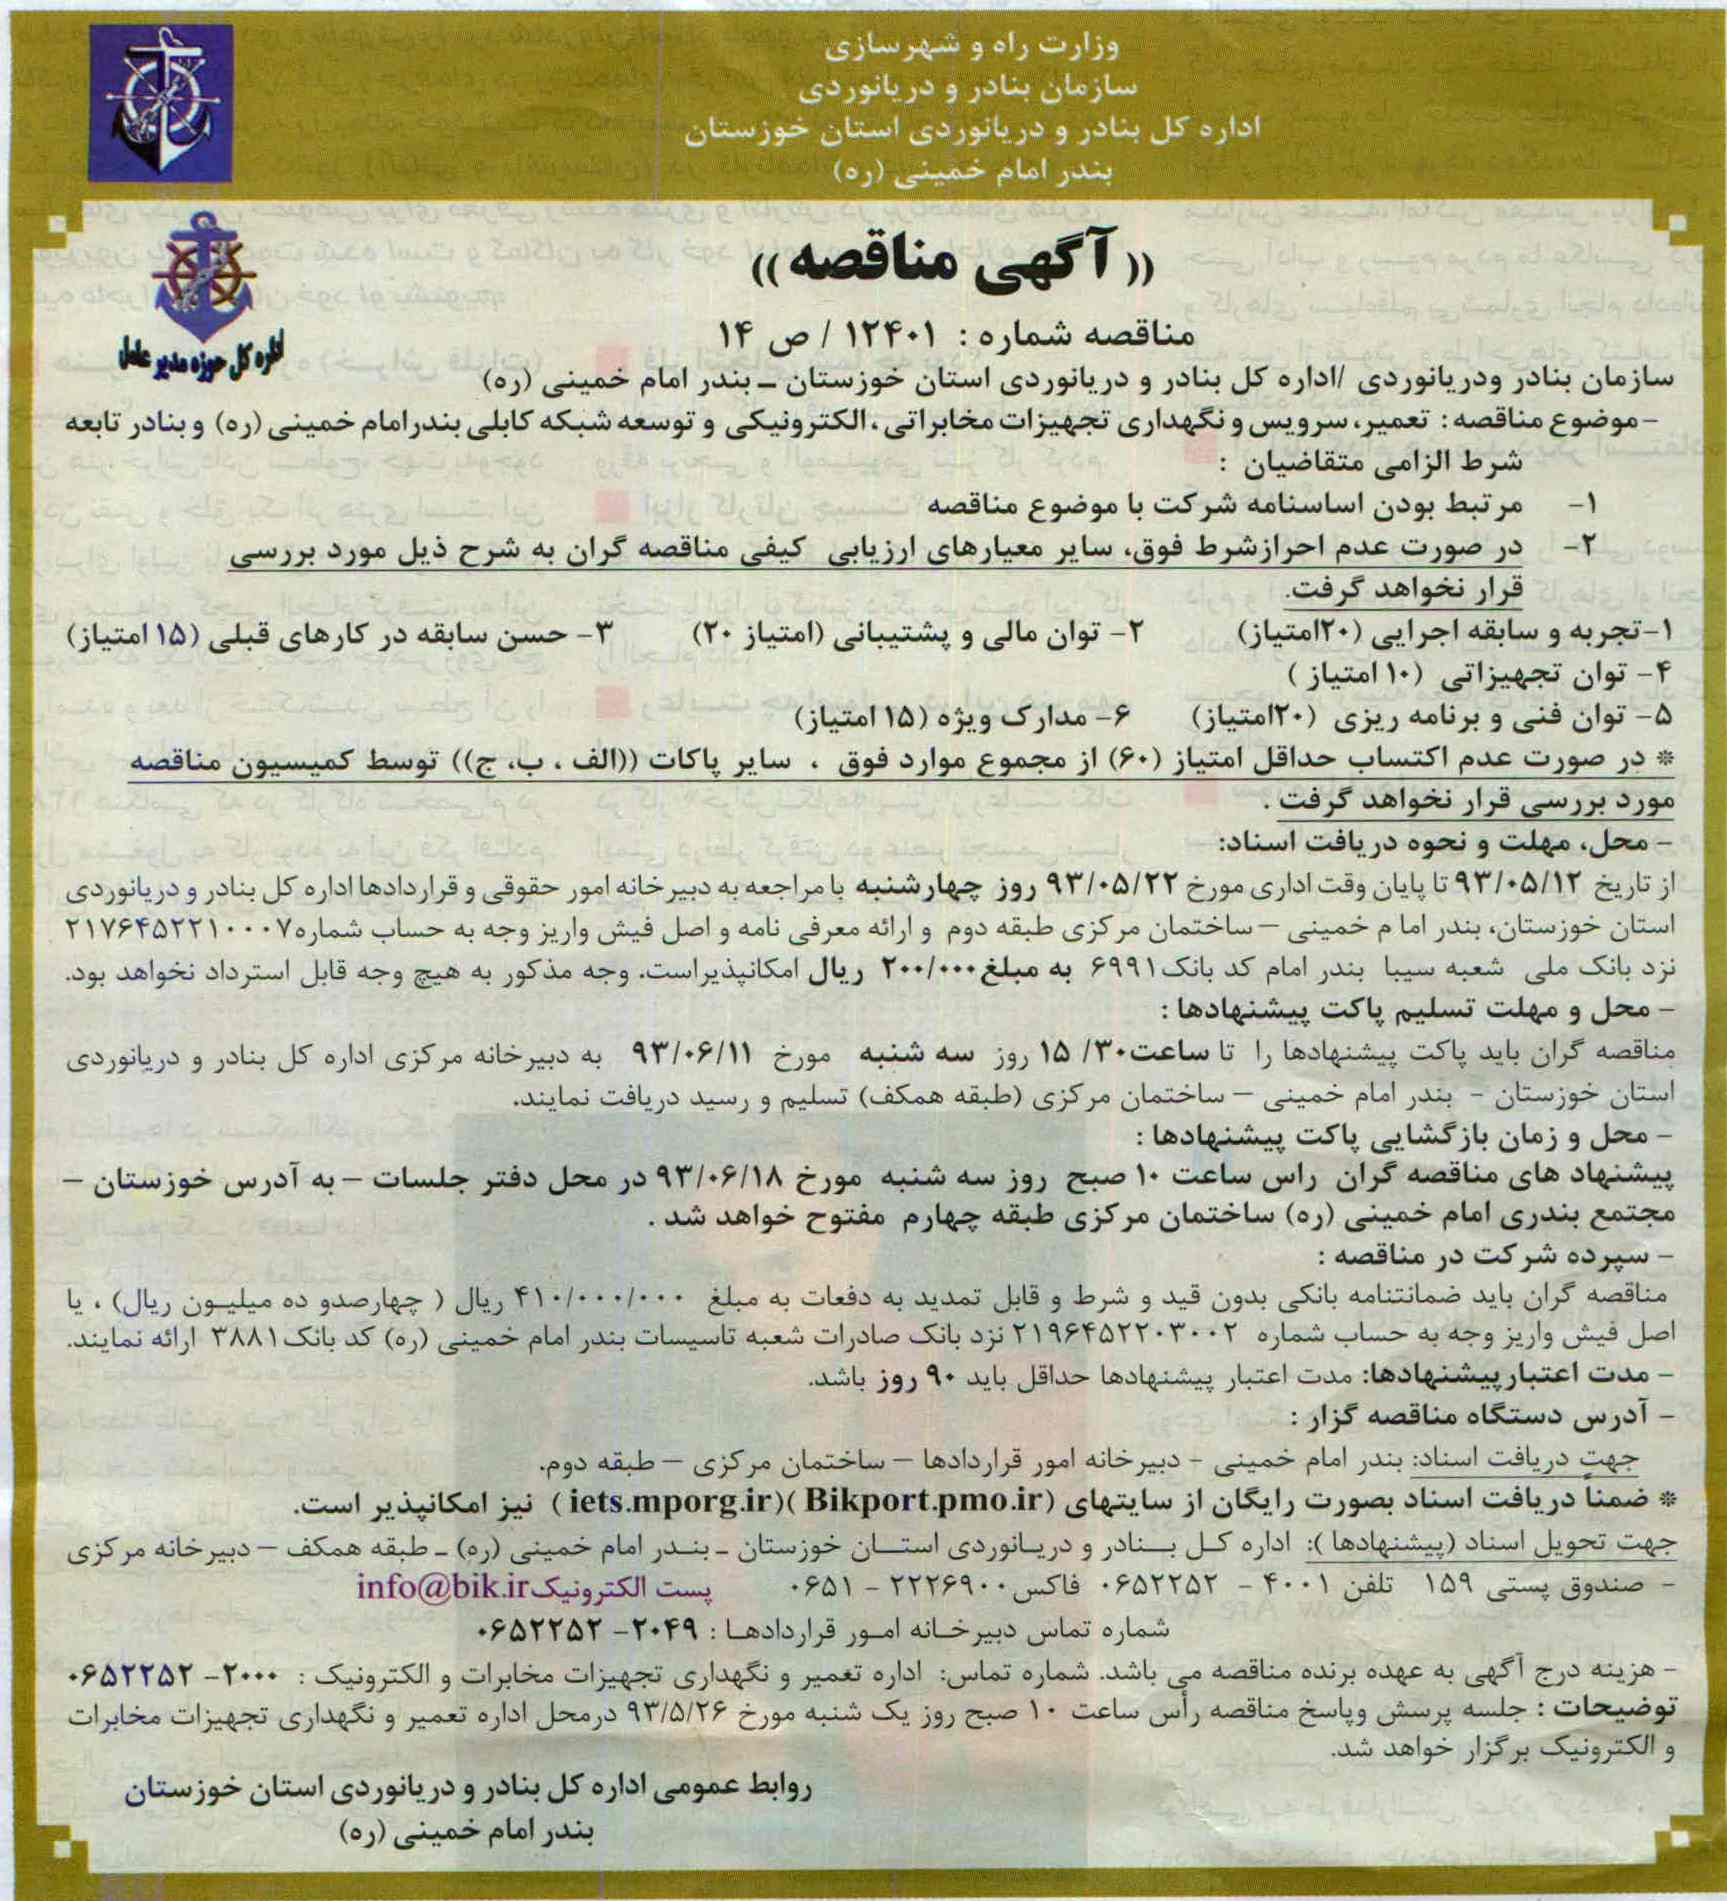 وزارت راه و شهرسازی
سازمان بنادر و دریانوردی
اداره کل بنادر و دریانوردی استان خوزستان
بندر امام خمینی (ره)
اداره کل حوزه مدیر عامل
((آگهی مناقصه))
مناقصه شماره : ۱۲۴۰۱ / ص ۱۴
سازمان بنادر ودریانوردی /اداره کل بنادر و دریانوردی استان خوزستان – بندر امام خمینی (ره)
-موضوع مناقصه: تعمیر، سرویس و نگهداری تجهیزات مخابراتی، الکترونیکی و توسعه شبکه کابلی بندرامام خمینی (ره) و بنادر تابعه
شرط الزامی متقاضیان :
۱- مرتبط بودن اساسنامه شرکت با موضوع مناقصه
۲- در صورت عدم احرازشرط فوق، سایر معیارهای ارزیابی کیفی مناقصه گران به شرح ذیل مورد بررسی
قرار نخواهد گرفت.
۱-تجربه و سابقه اجرایی (۲۰امتیاز) ۲- توان مالی و پشتیبانی (امتیاز ۲۰) ۳- حسن سابقه در کارهای قبلی (۱۵ امتیاز)
۴- توان تجهیزاتی (۱۰ امتیاز )
۵- توان فنی و برنامه ریزی (۲۰امتیاز) ۶- مدارک ویژه (۱۵ امتیاز)
* در صورت عدم اکتساب حداقل امتیاز (۶۰) از مجموع موارد فوق ، سایر پاکات ((الف ، ب، ج)) توسط کمیسیون مناقصه
مورد بررسی قرار نخواهد گرفت .
- محل، مهلت و نحوه دریافت اسناد:
از تاریخ ۹۳/۰۵/۱۲ تا پایان وقت اداری مورخ ۹۳/۰۵/۲۲ روز چهارشنبه با مراجعه به دبیرخانه امور حقوقی و قراردادها اداره کل بنادر و دریانوردی
استان خوزستان، بندر اما م خمینی – ساختمان مرکزی طبقه دوم و ارائه معرفی نامه و اصل فیش واریز وجه به حساب شماره۲۱۷۶۴۵۲۲۱۰۰۰۷
نزد بانک ملی شعبه سیبا بندر امام کد بانک۶۹۹۱ به مبلغ۲۰۰/۰۰۰ ریال امکانپذیراست. وجه مذکور به هیچ وجه قابل استرداد نخواهد بود.
- محل و مهلت تسلیم پاکت پیشنهادها :
مناقصه گران باید پاکت پیشنهادها را تا ساعت۳۰/ ۱۵ روز سه شنبه مورخ ۹۳/۰۶/۱۱ به دبیرخانه مرکزی اداره کل بنادر و دریانوردی
استان خوزستان – بندر امام خمینی – ساختمان مرکزی (طبقه همکف) تسلیم و رسید دریافت نمایند.
- محل و زمان بازگشایی پاکت پیشنهادها :
پیشنهاد های مناقصه گران راس ساعت ۱۰ صبح روز سه شنبه مورخ ۹۳/۰۶/۱۸ در محل دفتر جلسات – به آدرس خوزستان –
مجتمع بندری امام خمینی (ره) ساختمان مرکزی طبقه چهارم مفتوح خواهد شد .
- سپرده شرکت در مناقصه :
مناقصه گران باید ضمانتنامه بانکی بدون قید و شرط و قابل تمدید به دفعات به مبلغ ۴۱۰/۰۰۰/۰۰۰ ریال ( چهارصدو ده میلیون ریال) ، یا
اصل فیش واریز وجه به حساب شماره ۲۱۹۶۴۵۲۲۰۳۰۰۲ نزد بانک صادرات شعبه تاسیسات بندر امام خمینی (ره) کد بانک۳۸۸۱ ارائه نمایند.
- مدت اعتبارپیشنهادها: مدت اعتبار پیشنهادها حداقل باید ۹۰ روز باشد.
- آدرس دستگاه مناقصه گزار :
جهت دریافت اسناد: بندر امام خمینی - دبیرخانه امور قراردادها – ساختمان مرکزی – طبقه دوم.
* ضمناً دریافت اسناد بصورت رایگان از سایتهای (Bikport.pmo.ir )(iets.mporg.ir ) نیز امکانپذیر است.
جهت تحویل اسناد (پیشنهادها ): اداره کل بنادر و دریانوردی استان خوزستان – بندر امام خمینی (ره) – طبقه همکف – دبیرخانه مرکزی
- صندوق پستی ۱۵۹ تلفن ۴۰۰۱ - ۰۶۵۲۲۵۲ فاکس ۲۲۲۶۹۰۰ - ۰۶۵۱ پست الکترونیکinfo@bik.ir
شماره تماس دبیرخانه امور قراردادها : ۲۰۴۹- ۰۶۵۲۲۵۲
- هزینه درج آگهی به عهده برنده مناقصه می باشد. شماره تماس: اداره تعمیر و نگهداری تجهیزات مخابرات و الکترونیک : ۲۰۰۰- ۰۶۵۲۲۵۲
توضیحات : جلسه پرسش وپاسخ مناقصه رأس ساعت ۱۰ صبح روز یک شنبه مورخ ۹۳/۵/۲۶ درمحل اداره تعمیر و نگهداری تجهیزات مخابرات
و الکترونیک برگزار خواهد شد.
روابط عمومی اداره کل بنادر و دریانوردی استان خوزستان
بندر امام خمینی (ره)